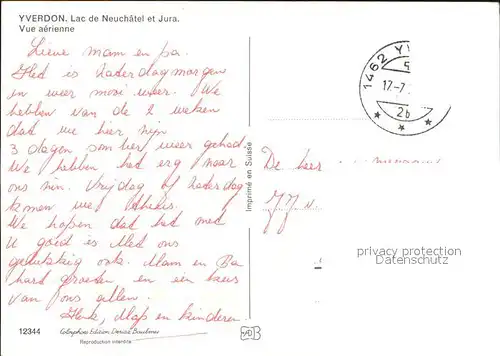 YVERDON. Lac de Neuchâtel et Jura.
Vue aérienne
Lieve mam en pa.
Het is zaterdagmorgen
en weer mooi weer. We
hebben van de 2 weken
dat we hier zijn
3 dagen som ber weer gehad.
We hebben het erg naar
ons zin. Vrijdag of Zaterdag
komen we thuis.
We hopen dat het met
U goed is Met ons
gelukkig ook. Mam en Pa
hard groeten en een kus
van ons allen.
Henk, Map en kinderen
12344
Colorphoto Edition Denise Boulmer
Reproduction interdite
Imprimé en Suisse
1462 Y
17-7
2b
De heer
privacy protection
watermark